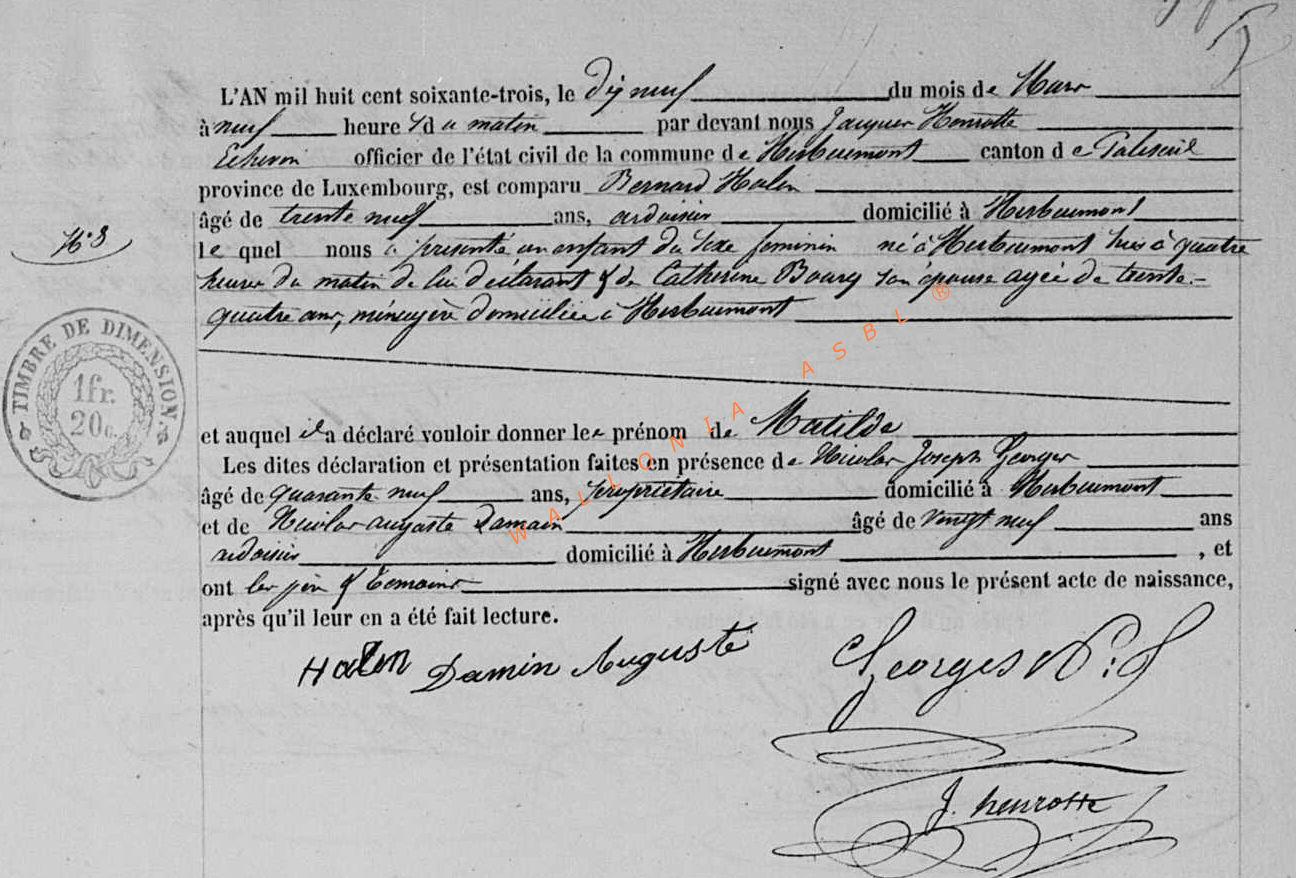 L'AN mil huit cent soixante-trois, le Dix neuf du mois de Mars
à neuf heures du matin par devant nous Jacques Henrotte
Echevin officier de l'état civil de la commune de Herbeumont canton de Paliseul
province de Luxembourg, est comparu Bernard Halen
âgé de trente neuf ans, ardoisier domicilié à Herbeumont
N° 8
le quel nous a présenté, un enfant du sexe feminin né à Herbeumont hier à quatre
heures du matin de lui déclarant & de Catherine Bourg son épouse agée de trente-
quatre ans, ménagère domiciliée à Herbeumont
TIMBRE DE DIMENSION
1fr.
20c.
et auquel il a déclaré vouloir donner les prénom de Matilde
Les dites déclaration et présentation faites en présence de Nicolas Joseph Georges
âgé de quarante neuf ans, propriétaire domicilié à Herbeumont
et de Nicolas auguste Damain âgé de vingt neuf ans
ardoisier domicilié à Herbeumont , et
ont les père & témoins signé avec nous le présent acte de naissance,
après qu'il leur en a été fait lecture.
Halen Damin Auguste Georges N: J
J. henrotte
WALLONIA ASBL ®